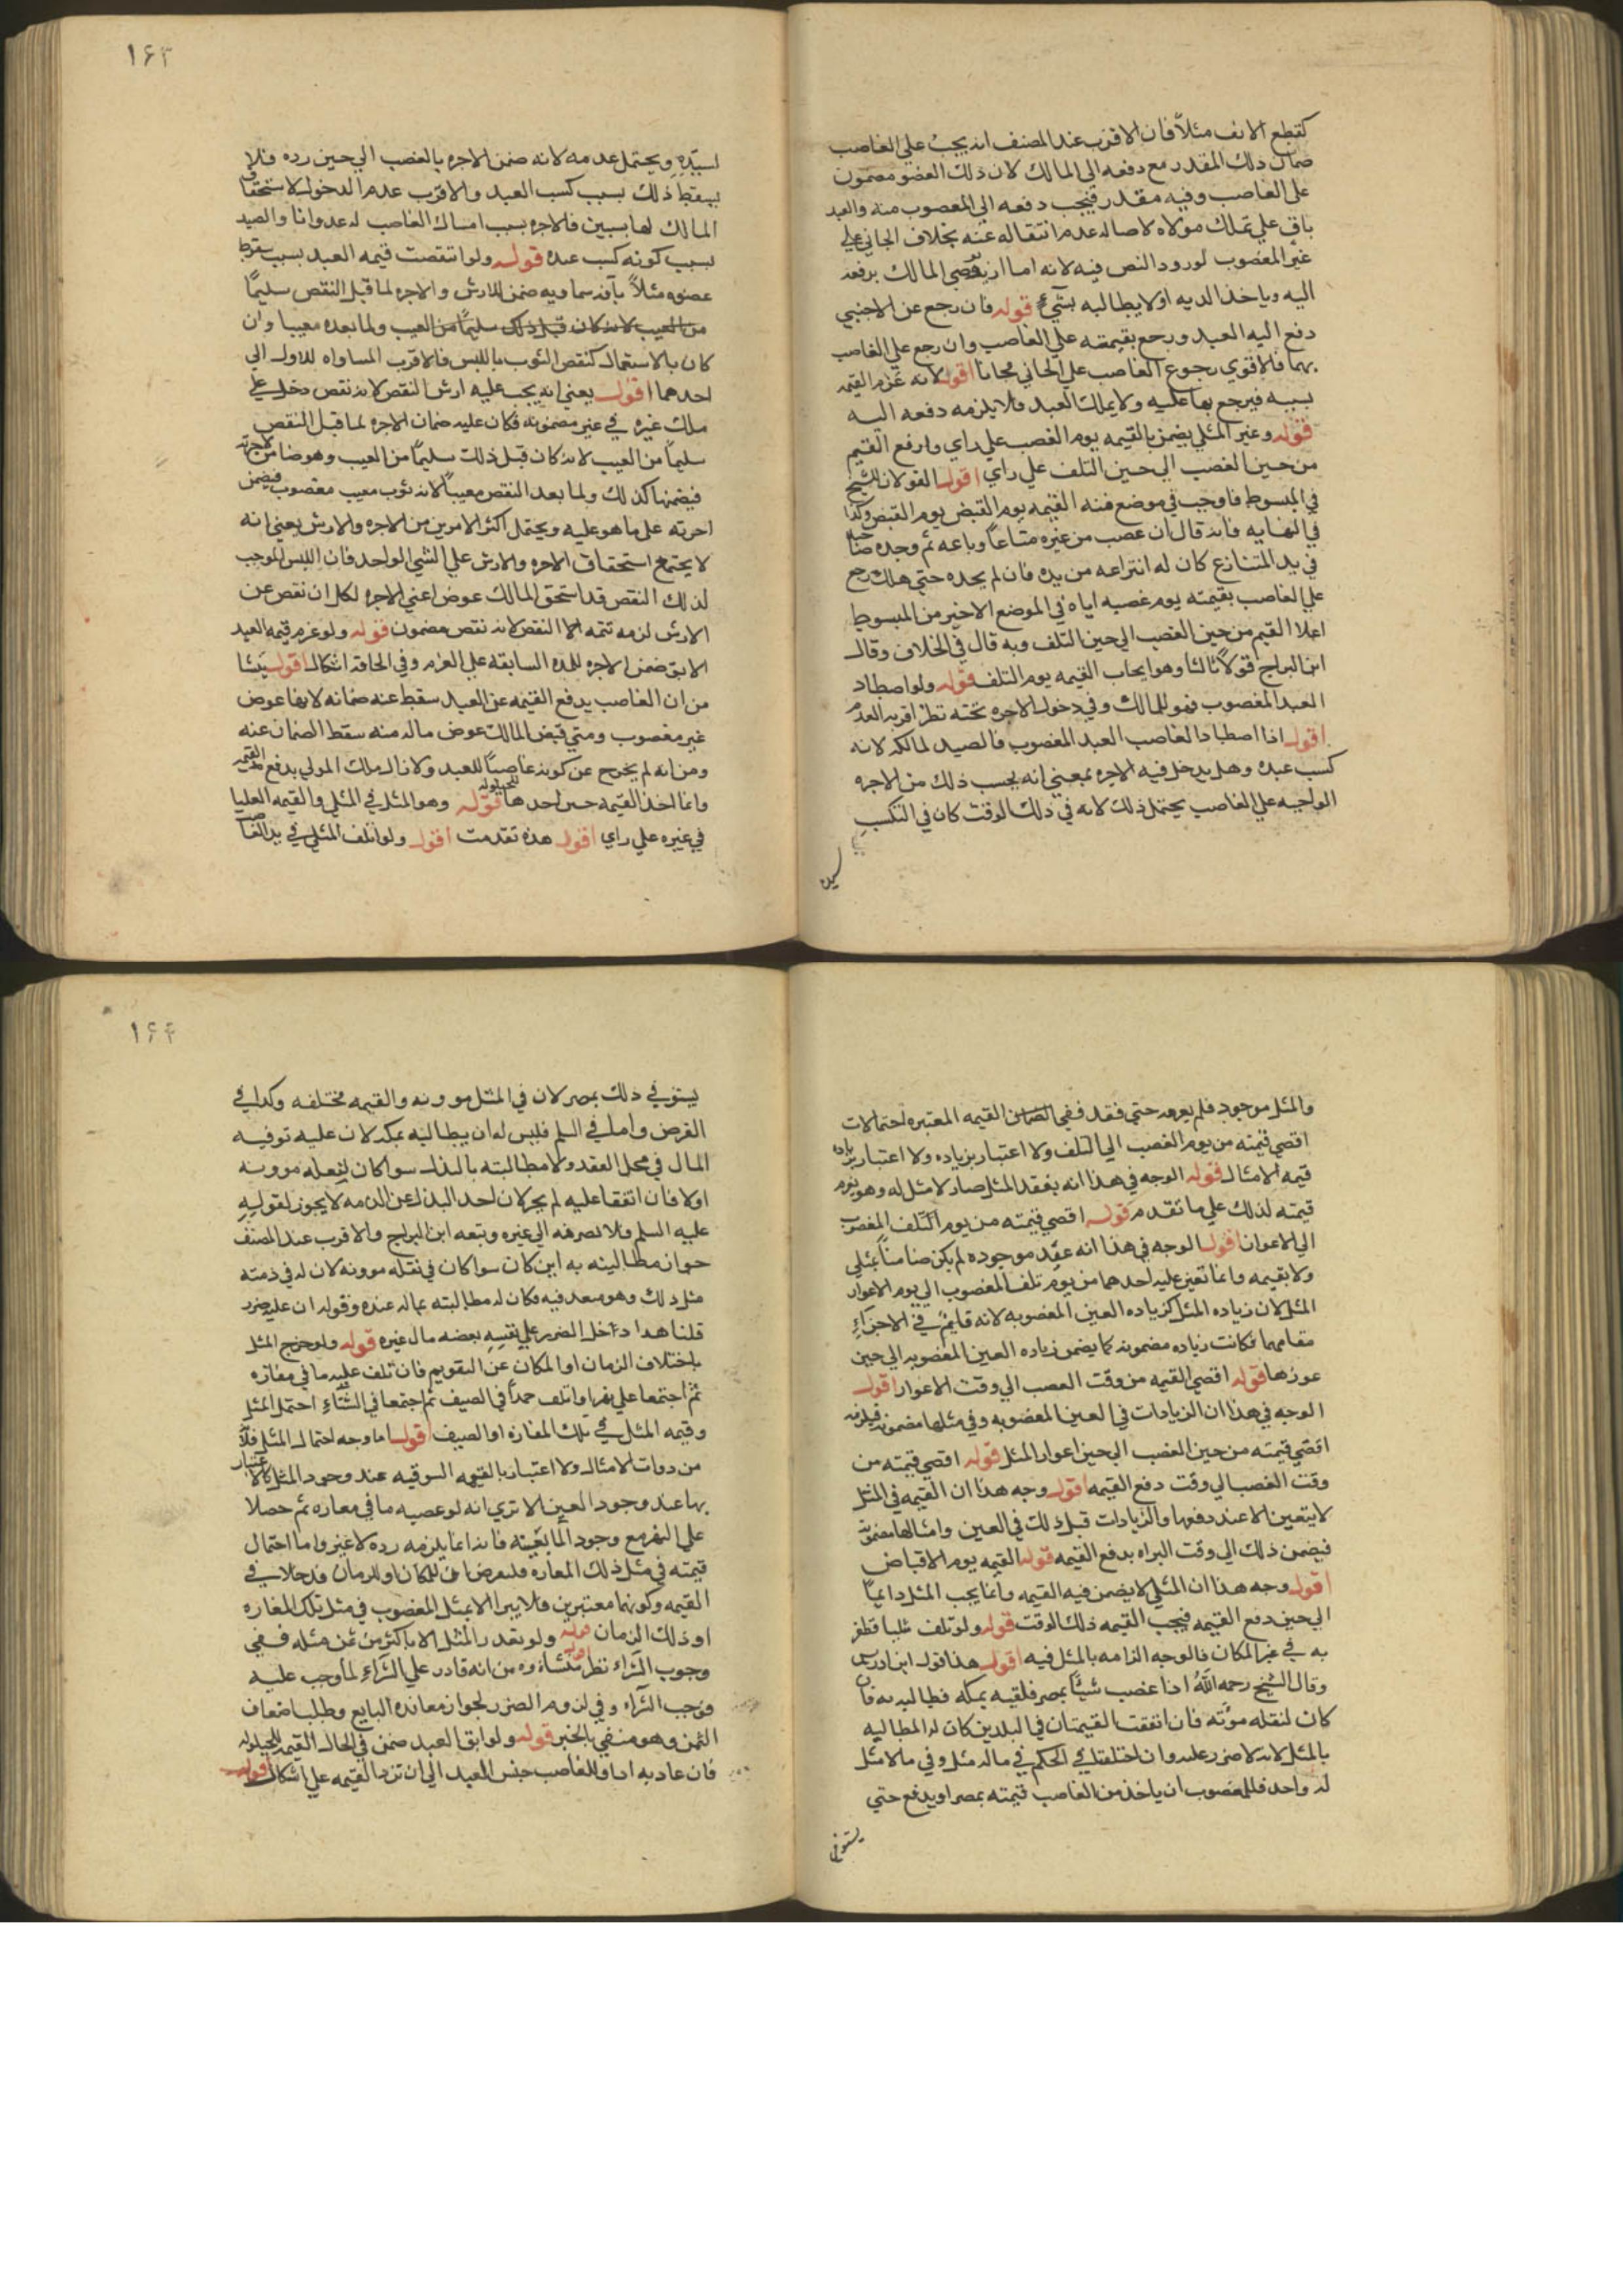 كقطع الانف مثلاً فان الاقرب عند المصنف انه يجب علي الغاصب
ضمان ذلك المقدر مع دفعه الي المالك لان ذلك العضو مضمون
علي الغاصب وفيه مقدر فيجب دفعه الي المغصوب منه والعبد
باق علي تملك مولاه لاصاله عدم انتقاله عنه بخلاف الجاني علي
غير المغصوب لورود النص فيه لانه اما ان يرضي المالك برفعه
اليه وياخذ الديه او لا يطالبه بشيء قوله فان رجع عن الاجنبي
دفع اليه العبد ورجع بقيمته علي الغاصب وان رجع علي الغاصب
بهما فالاقوي رجوع الغاصب علي الجاني مجانا اقول لانه غرم القيمه
بسببه فيرجع بها عليه ولا يملك العبد فلا يلزمه دفعه اليه
قوله وغير المثلي يضمن بالقيمه يوم الغصب علي راي وارفع القيم
من حين الغصب الي حين التلف علي راي اقول القولان للشيخ
في المبسوط فاوجب في موضع منه القيمه يوم القبض يوم القبض وكذا
في النهايه فانه قال ان غصب من غيره متاعاً وباعه ثم وجده صاحبه
في يد المتنازع كان له انتزاعه من يده فان لم يجده حتي هلك رجع
علي الغاصب بقيمته يوم غصبه اياه في الموضع الاخير من المبسوط
اعلا القيم من حين الغصب الي حين التلف وبه قال في الخلاف وقال
ابن البراج قولاً ثالثا وهو ايجاب القيمه يوم التلف قوله ولو اصطاد
العبد المغصوب فهو للمالك وفي دخول الاجره تحته نظر اقربه العدم
اقول اذا اصطاد الغاصب العبد المغصوب فالصيد لمالكه لانه
كسب عبده وهل يدخل فيه الاجره بمعني انه يحسب ذلك من الاجره
الواجبه علي الغاصب يحتمل ذلك لانه في ذلك الوقت كان في التكسب
لسيده
١۶٣
لسيّده ويحتمل عدمه لانه ضمن الاجره بالغصب الي حين رده فلا
يسقط ذلك بسبب كسب العبد والاقرب عدم الدخول لاستحقاق
المالك لها بسببين فالاجره بسبب امساك الغاصب له عدوانا والصيد
بسبب كونه كسب عبده قوله ولو انتقصت قيمه العبد بسبب سقوط
عضوه مثلاً بآفه سماويه ضمن الارش والاجره لما قبل النقص سليماً
من العيب لانه كان قبل ذلك سليماً من العيب ولما بعده معيبا وان
كان بالاستعمال كنقص الثوب باللبس فالاقرب المساواه للاول الي
احدهما اقول يعني انه يجب عليه ارش النقص لانه نقص دخل علي
ملك غيره في عين مضمونه فكان عليه ضمان الاجره لما قبل النقص
سليماً من العيب لانه كان قبل ذلك سليماً من العيب وهو ضامن لاجرته
فيضمنها كذلك ولما بعد النقص معيباً لانه ثوب معيب مغصوب فيضمن
اجرته علي ما هو عليه ويحتمل اكثر الامرين من الاجره والارش يعني انه
لا يجتمع استحقاق الاجره والارش علي الشي الواحد فان اللبس الموجب
لذلك النقص قد استحق المالك عوض اعني الاجره لكل ان نقص عن
الارش لزمه تتمه النقص لانه نقص مضمون قوله ولو غرم قيمه العبد
الابق ضمن الاجره للمده السابقه علي الغرم وفي الاحقه اشكال اقول ينشا
من ان الغاصب يدفع القيمه عن العبد سقط عنه ضمانه لانها عوض
غير مغصوب ومتي قبض المالك عوض ماله منه سقط الضمان عنه
ومن انه لم يخرج عن كونه غاصباً للعبد ولا زال ملك المولي بدفع القيمه
وانما اخذ القيمه حين اخذها للحيلوله قوله وهو المثل في المثلي والقيمه العليا
في غيره علي راي اقول هذه تقدمت اقول ولو اتلف المثلي في يد الغاصب
والمثل موجود فلم يغرمه حتي فقد ففي القيمه المعتبره احتمالات
اقصي قيمته من يوم الغصب الي التلف ولا اعتبار بزياده ولا اعتبار بزياده
قيمه الامثال قوله الوجه في هذا انه بفقد المثل صار لا مثل له وهو يغرم
قيمته لذلك علي ما تقدم قوله اقصي قيمته من يوم التلف المغصوب
الي الاعواز اقول الوجه في هذا انه عند موجوده لم يكن ضامناً بمثلي
ولا بقيمه وانما تعين عليه احدهما من يوم تلف المغصوب الي يوم الاعواز
المثل لان زياده المثل كزياده العين المغصوبه لانه قايم في الاجزاء
مقامهما فكانت زياده مضمونه كما يضمن زياده العين المغصوبه الي حين
عوزها قوله اقصي القيمه من وقت الغصب الي وقت الاعواز اقول
الوجه في هذا ان الزيادات في العين المغصوبه وفي مثلها مضمونه فيلزمه
اقصي قيمته من حين الغصب الي حين اعواز المثل قوله اقصي قيمته من
وقت الغصب الي وقت دفع القيمه اقول وجه هذا ان القيمه في المثل
لا يتعين الا عند دفعها والزيادات قبل ذلك في العين وامثالها مضمونة
فيضمن ذلك الي وقت البراه بدفع القيمه قوله القيمه يوم الاقباض
اقول وجه هذا ان المثلي لا يضمن فيه القيمه وانما يجب المثل دايماً
الي حين دفع القيمه فيجب القيمه ذلك الوقت قوله ولو تلف مثليا فظفر
به في غير المكان فالوجه الزامه بالمثل فيه اقول هذا قول ابن ادريس
وقال الشيخ رحمه اللّه اذا غصب شيئاً بمصر فلقيه بمكه فطالبه به فان
كان لنقله مؤنه فان اتفقت القيمتان في البلدين كان له المطالبه
بالمثل لانه لا ضرر عليه وان اختلفت فالحكم في ماله مثل وفي ما لا مثل
له واحد فللمغصوب ان ياخذ من الغاصب قيمته بمصر او يدفع حتي
يستوفي
١۶۴
يستوفي ذلك بمصر لان في المثل موونه والقيمه مختلفه وكذا في
القرض واما في السلم فليس له ان يطالبه بمكه لان عليه توفيه
المال في محل العقد ولا مطالبته بالبدل سوا كان لنقله موونه
اولا فان اتفقا عليه لم يجز لان اخذ البدل عن الذمه لا يجوز لقوله
عليه السلم فلا يصرفه الي غيره وتبعه ابن البراج والاقرب عند المصنف
جواز مطالبته به اين كان سوا كان في نقله موونه لان له في ذمته
مثل ذلك وهو متعد فيه فكان له مطالبته بماله عنده وقوله ان عليه ضرر
قلنا هذا ادخل الضرر علي نفسه بغصبه مال غيره قوله ولو خرج المثل
باختلاف الزمان او المكان عن التقويم فان تلف عليه ما في مفازه
ثم اجتمعا علي نهر او اتلف جمداً في الصيف ثم اجتمعا في الشتاء احتمل المثل
وقيمه المثل في تلك المفازه او الصيف اقول اما وجه احتمال المثل فلانه
من ذوات الامثال ولا اعتبار بالقيمه السوقيه عند وجود المثل كما لا اعتبار
بها عند وجود العين الا تري انه لو غصبه ما في مفازه ثم حصلا
علي النهر مع وجود الما بعينه فانه انما يلزمه رده لا غير واما احتمال
قيمته في مثل ذلك المفازه فلفرض ان للمكان وللزمان مدخلا في
القيمه وكونهما معتبرين فلا يبرا الا بمثل المغصوب في مثل تلك المفازه
او ذلك الزمان قوله ولو تعذر المثل الا باكثر من ثمن مثله ففي
وجوب الشراء نظر اقول منشاؤه من انه قادر علي الشراء لما وجب عليه
فوجب الشراء وفي لزوم الضرر لجواز معانده البايع وطلب اضعاف
الثمن وهو منفي بالخبر قوله ولو ابق العبد ضمن في الحال القيمه للحيلوله
فان عاد به اداه وللغاصب حبس العبد الي ان ترد القيمه علي اشكال اقول